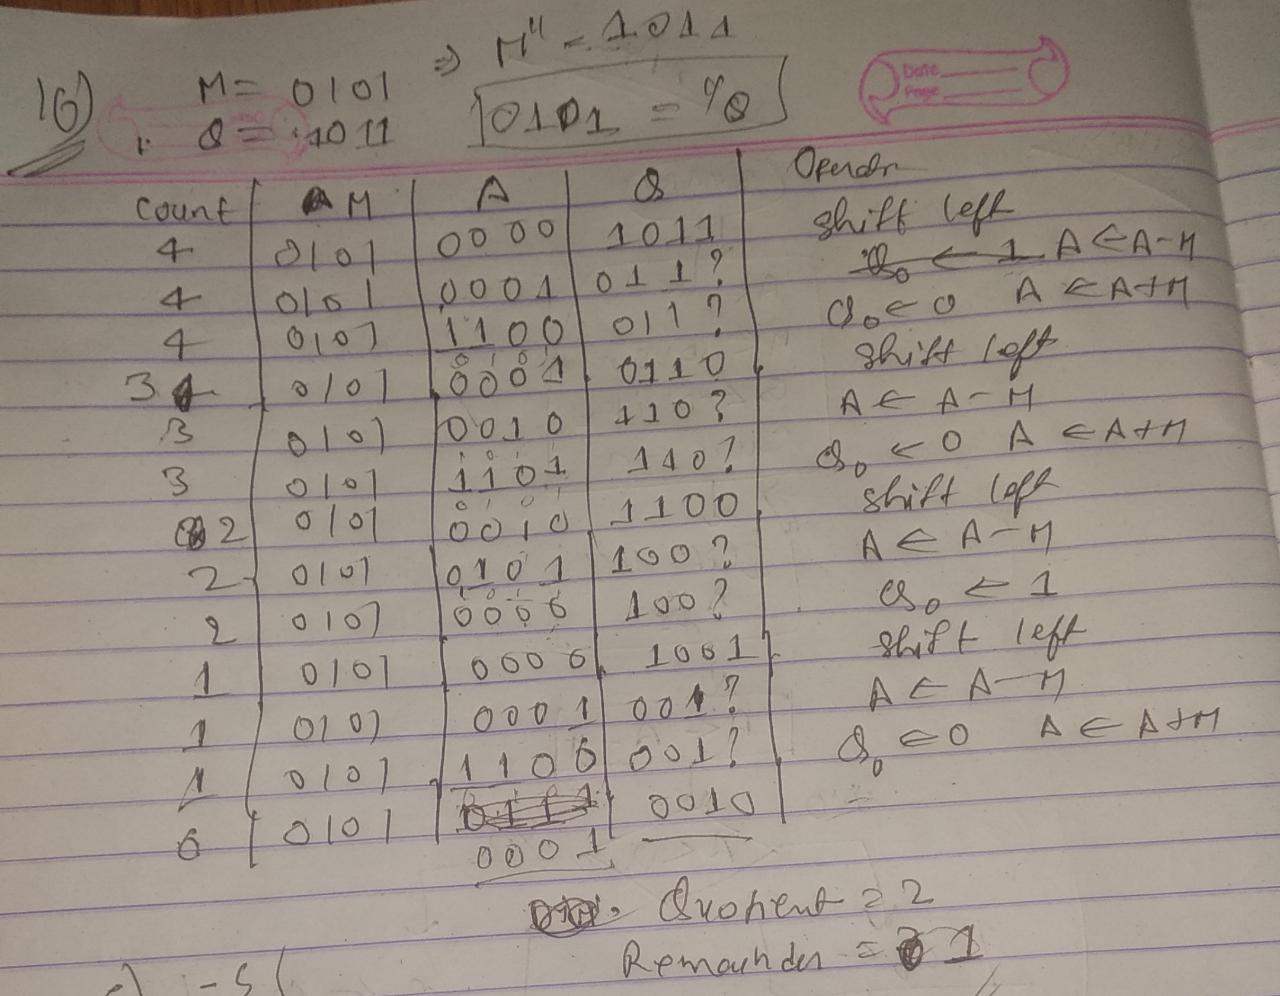 16) M = 0101 ⇒ M" = 1011
Q = 1011 0101 = %Q
Date
Page
Count M A Q Operatn
4 0101 0000 1011 shift left
4 0101 0001 011? A ← A-M
4 0101 1100 011? Q₀ ← 0 A ← A+M
3 0101 0001 0110 shift left
3 0101 0010 110? A ← A-M
3 0101 1101 110? Q₀ ← 0 A ← A+M
2 0101 0010 1100 shift left
2 0101 0101 100? A ← A-M
2 0101 0000 100? Q₀ ← 1
1 0101 0000 1001 shift left
1 0101 0001 001? A ← A-M
1 0101 1100 001? Q₀ ← 0 A ← A+M
0 0101 0010 -
0001
Quotient = 2
Remainder = 1
-5